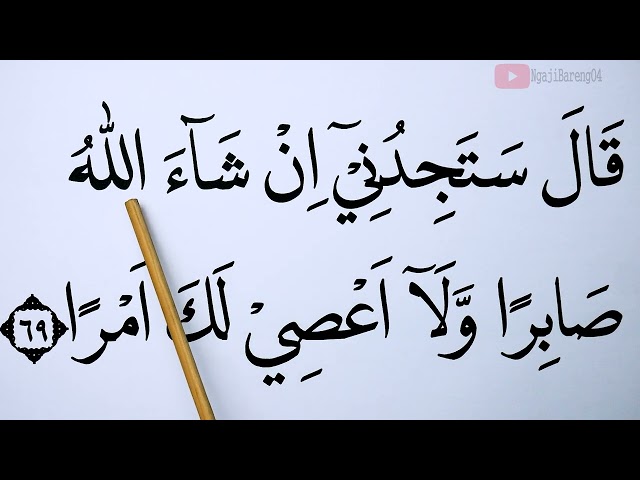 NgajiBareng04
قَالَ سَتَجِدُنِيْٓ اِنْ شَاۤءَ اللّٰهُ
صَابِرًا وَّلَآ اَعْصِيْ لَكَ اَمْرًا ٦٩